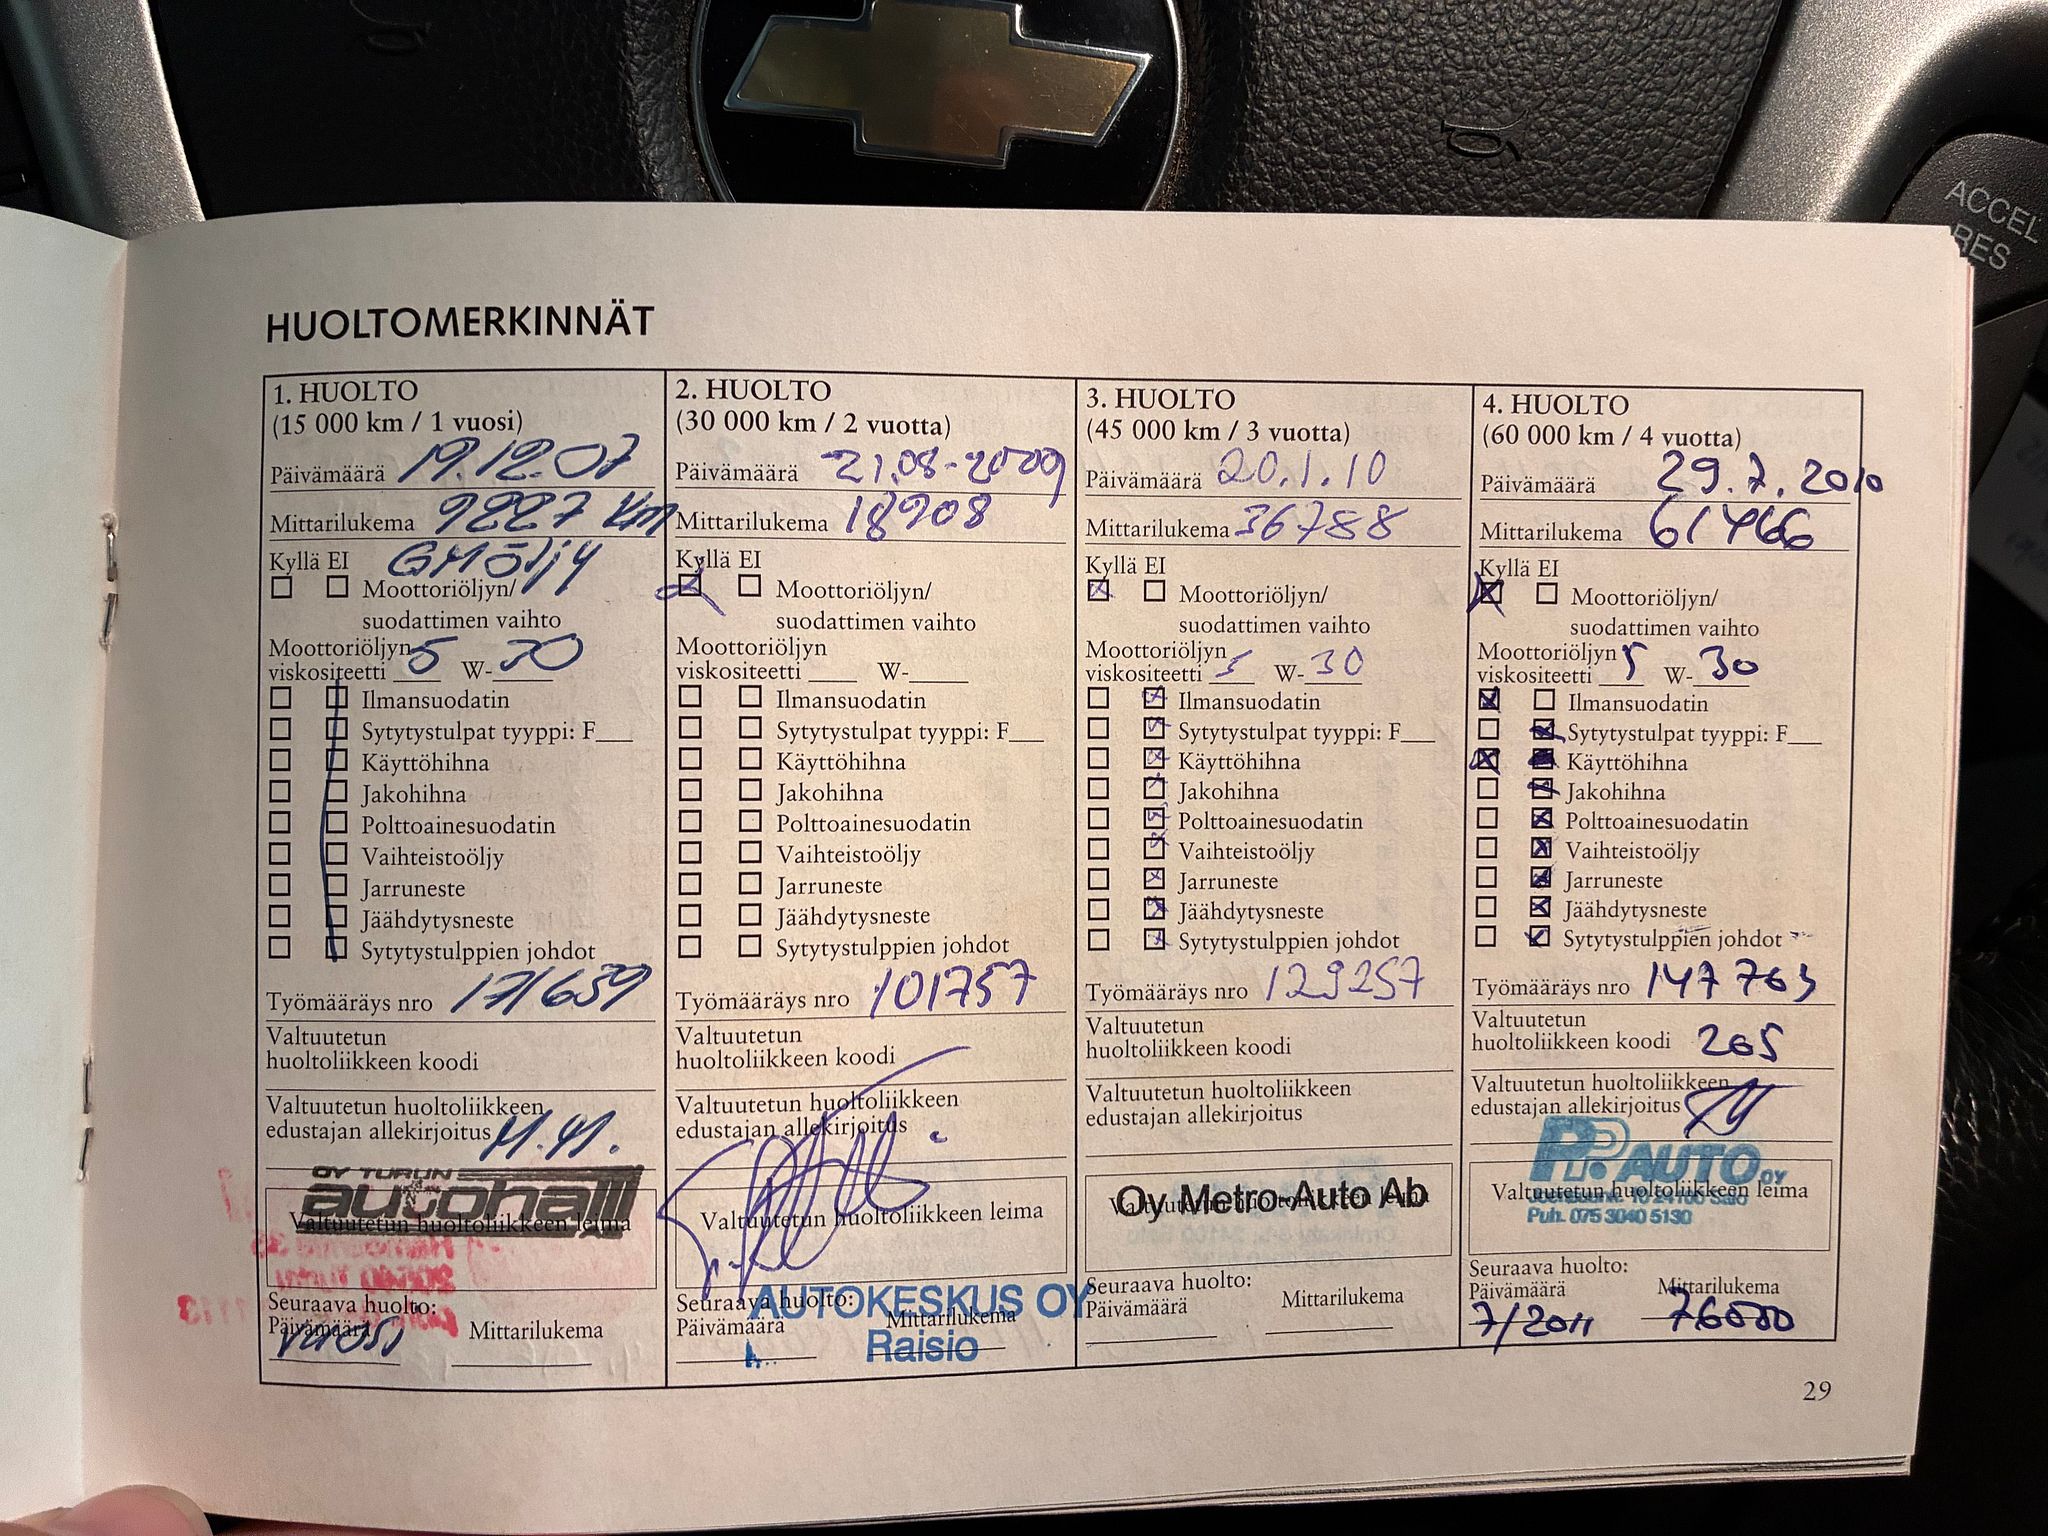 ACCEL
RES
HUOLTOMERKINNÄT
1. HUOLTO
(15 000 km / 1 vuosi)
Päivämäärä 19.12.07
Mittarilukema 9227 km
Kyllä EI GM öljy
Moottoriöljyn/
suodattimen vaihto
Moottoriöljyn
viskositeetti 5 W-30
Ilmansuodatin
Sytytystulpat tyyppi: F___
Käyttöhihna
Jakohihna
Polttoainesuodatin
Vaihteistoöljy
Jarruneste
Jäähdytysneste
Sytytystulppien johdot
Työmääräys nro 171659
Valtuutetun
huoltoliikkeen koodi
Valtuutetun huoltoliikkeen
edustajan allekirjoitus
OY TURUN
autohalli
Valtuutetun huoltoliikkeen leima
Seuraava huolto:
Päivämäärä Mittarilukema
vuosi
2. HUOLTO
(30 000 km / 2 vuotta)
Päivämäärä 21.08-2009
Mittarilukema 18908
Kyllä EI
Moottoriöljyn/
suodattimen vaihto
Moottoriöljyn
viskositeetti ___ W-____
Ilmansuodatin
Sytytystulpat tyyppi: F___
Käyttöhihna
Jakohihna
Polttoainesuodatin
Vaihteistoöljy
Jarruneste
Jäähdytysneste
Sytytystulppien johdot
Työmääräys nro 101757
Valtuutetun
huoltoliikkeen koodi
Valtuutetun huoltoliikkeen
edustajan allekirjoitus
Valtuutetun huoltoliikkeen leima
Seuraava huolto:
Päivämäärä Mittarilukema
AUTOKESKUS OY
Raisio
3. HUOLTO
(45 000 km / 3 vuotta)
Päivämäärä 20.1.10
Mittarilukema 36788
Kyllä EI
Moottoriöljyn/
suodattimen vaihto
Moottoriöljyn
viskositeetti 5 W-30
Ilmansuodatin
Sytytystulpat tyyppi: F___
Käyttöhihna
Jakohihna
Polttoainesuodatin
Vaihteistoöljy
Jarruneste
Jäähdytysneste
Sytytystulppien johdot
Työmääräys nro 129257
Valtuutetun
huoltoliikkeen koodi
Valtuutetun huoltoliikkeen
edustajan allekirjoitus
Oy Metro-Auto Ab
Valtuutetun huoltoliikkeen leima
Seuraava huolto:
Päivämäärä Mittarilukema
4. HUOLTO
(60 000 km / 4 vuotta)
Päivämäärä 29.7.2010
Mittarilukema 61466
Kyllä EI
Moottoriöljyn/
suodattimen vaihto
Moottoriöljyn
viskositeetti 5 W-30
Ilmansuodatin
Sytytystulpat tyyppi: F___
Käyttöhihna
Jakohihna
Polttoainesuodatin
Vaihteistoöljy
Jarruneste
Jäähdytysneste
Sytytystulppien johdot
Työmääräys nro 147703
Valtuutetun
huoltoliikkeen koodi 265
Valtuutetun huoltoliikkeen
edustajan allekirjoitus
PP.AUTO OY
Valtuutetun huoltoliikkeen leima
24100 Salo
Puh. 075 3040 5130
Seuraava huolto:
Päivämäärä Mittarilukema
7/2011 76000
29